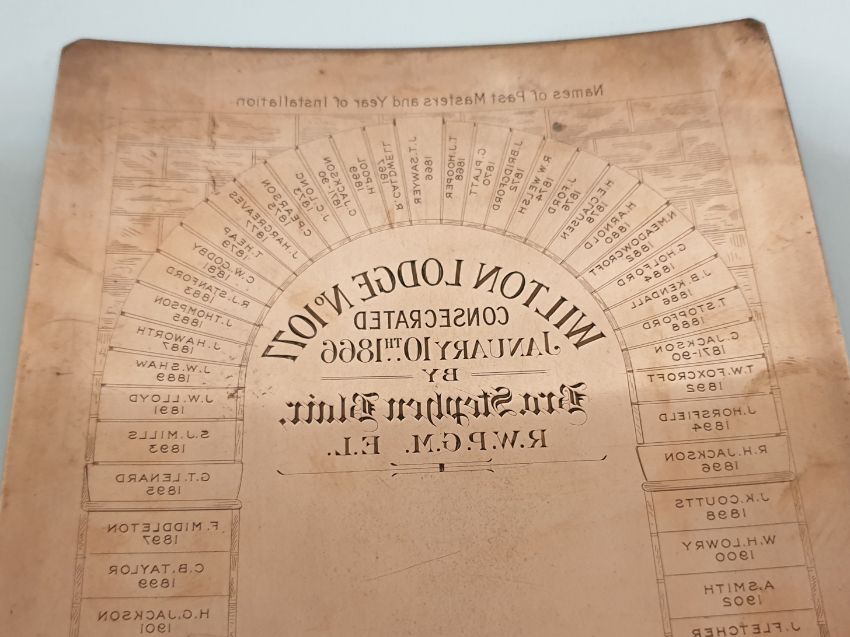 Names of Past Masters and Year of Installation
J.T. SAWYER
1866
R. CALDWELL
1867
H. POOL
1869
G. JACKSON
1871-90
J.C. LONG
1873
C. PEARSON
1875
J. HARGREAVES
1877
T. HEAP
1879
C.W. GODBY
1881
R.J. STANFORD
1883
J. THOMPSON
1885
J. HAWORTH
1887
J.W. SHAW
1889
J.W. LLOYD
1891
S.J. MILLS
1893
G.T. LENARD
1895
F. MIDDLETON
1897
C.B. TAYLOR
1899
H.G. JACKSON
1901
T.J. HOOPER
1868
C. PLATT
1870
J. BRIDGFORD
1872
R.W. WELSH
1874
J. FORD
1876
H.E. CLAUSEN
1878
H. ARNOLD
1880
N. MEADOWCROFT
1882
C. HOLFORD
1884
J.B. KENDALL
1886
T. STOPFORD
1888
G. JACKSON
1871-90
T.W. FOXCROFT
1892
J. HORSFIELD
1894
R.H. JACKSON
1896
J.K. COUTTS
1898
W.H. LOWRY
1900
A. SMITH
1902
J. FLETCHER
WILTON LODGE Nº 1077
CONSECRATED
JANUARY 10TH 1866
BY
Bro. Stephen Blair.
R.W.P.G.M. E.L.